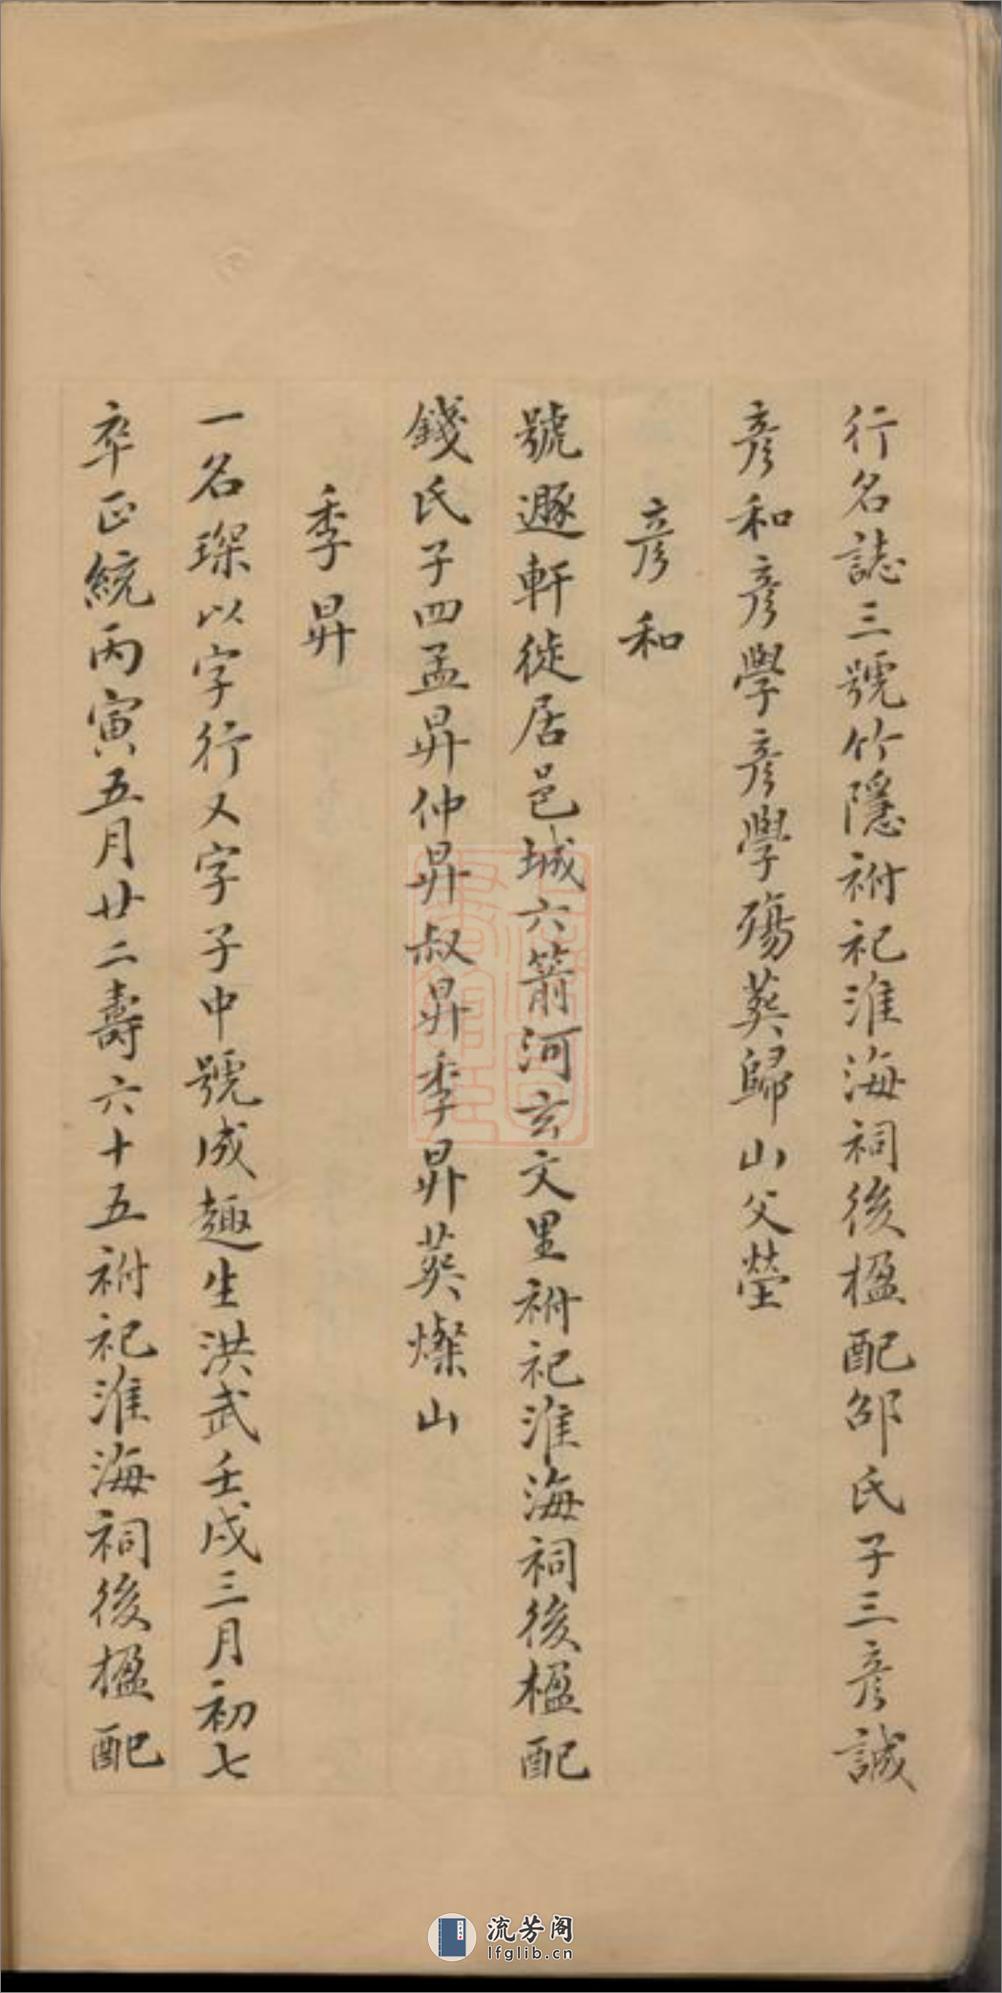 行名誌三號竹隱祔祀淮海祠後楹配邵氏子三彥誠
彥和彥學彥學殤葬歸山父塋
彥和
號遯軒徙居邑城六箭河玄文里祔祀淮海祠後楹配
錢氏子四孟昇仲昇叔昇季昇葬燦山
季昇
一名琛以字行又字子中號成趣生洪武壬戌三月初七
卒正統丙寅五月廿二壽六十五祔祀淮海祠後楹配
流芳阁
lfglib.cn